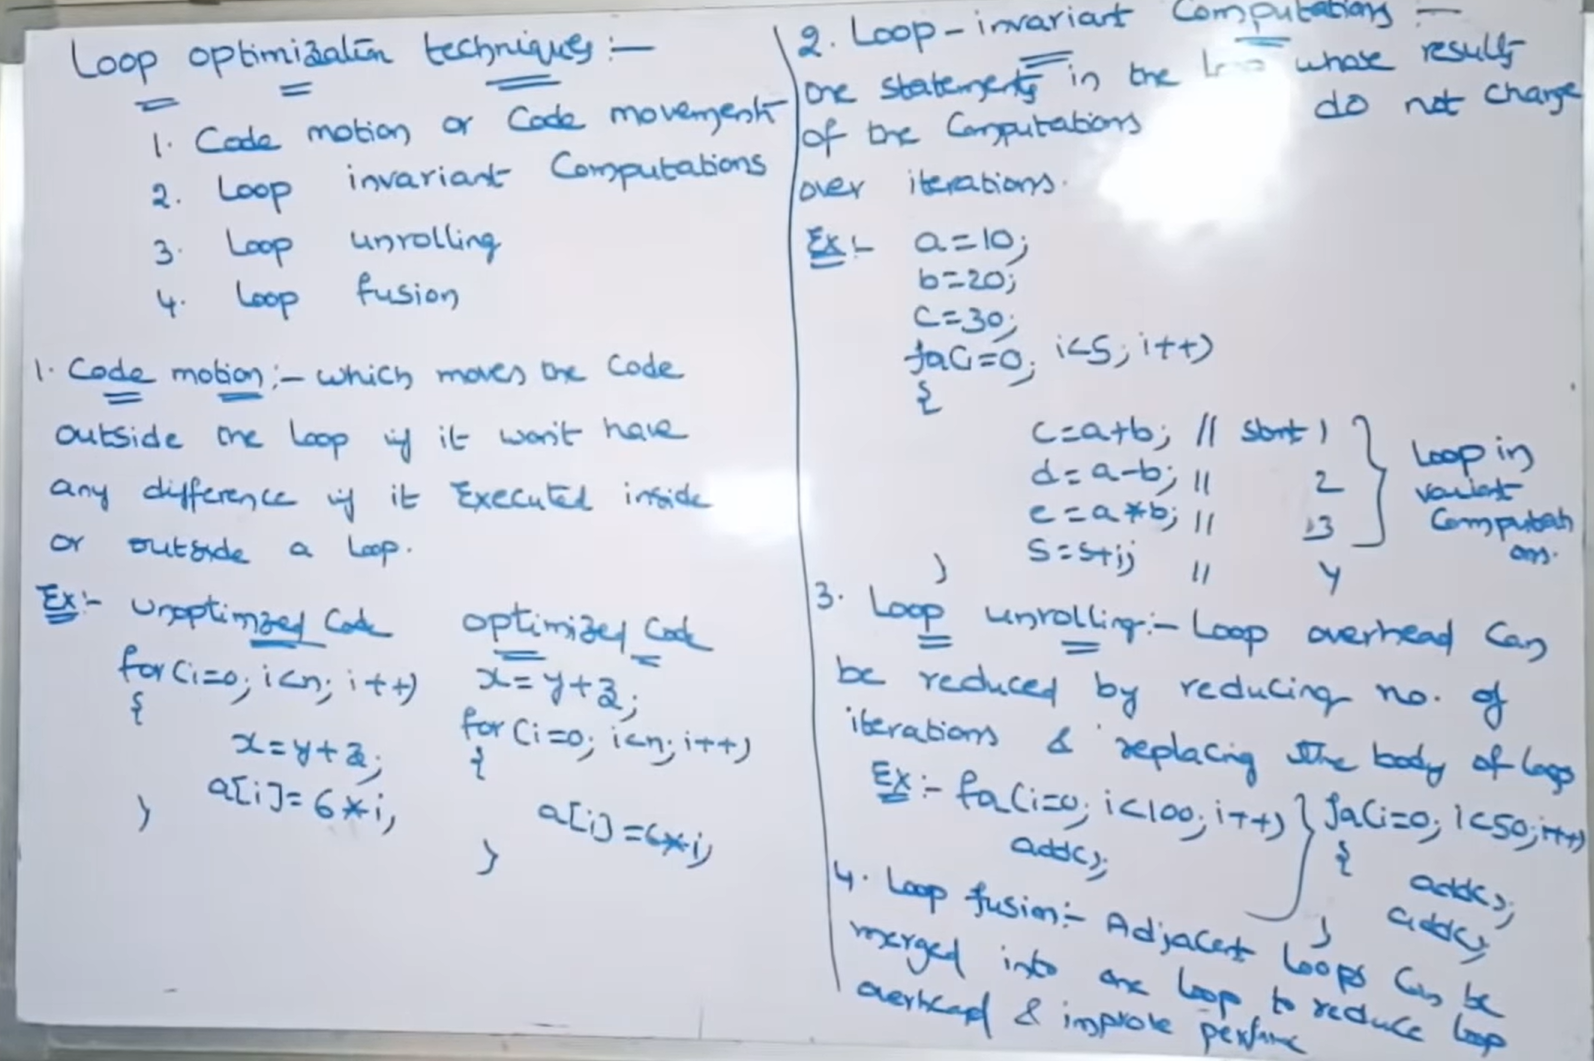 Loop optimization techniques :-
1. Code motion or Code movement
2. Loop invariant Computations
3. Loop unrolling
4. Loop fusion
1. Code motion :- which moves the Code
outside the Loop if it won't have
any difference if it Executed inside
or outside a Loop.
Ex :- Unoptimized Code
for(i=0; i<n; i++)
{
x=y+z;
a[i]=6*i;
}
optimized Code
x=y+z;
for(i=0; i<n; i++)
{
a[i]=6*i;
}
2. Loop-invariant Computations :-
The statements in the whose results
of the Computations do not change
over iterations.
Ex :- a=10;
b=20;
c=30;
for(i=0; i<5; i++)
{
c=a+b; // stmt 1
d=a-b; // 2
e=a*b; // 3
s=s+i; // 4
}
Loop in
variant
Computati
ons.
3. Loop unrolling :- Loop overhead Can
be reduced by reducing no. of
iterations & replacing the body of Loop
Ex :- for(i=0; i<100; i++)
add();
for(i=0; i<50; i++)
{
add();
add();
}
4. Loop fusion :- Adjacent Loops Can be
merged into one Loop to reduce Loop
overhead & improve